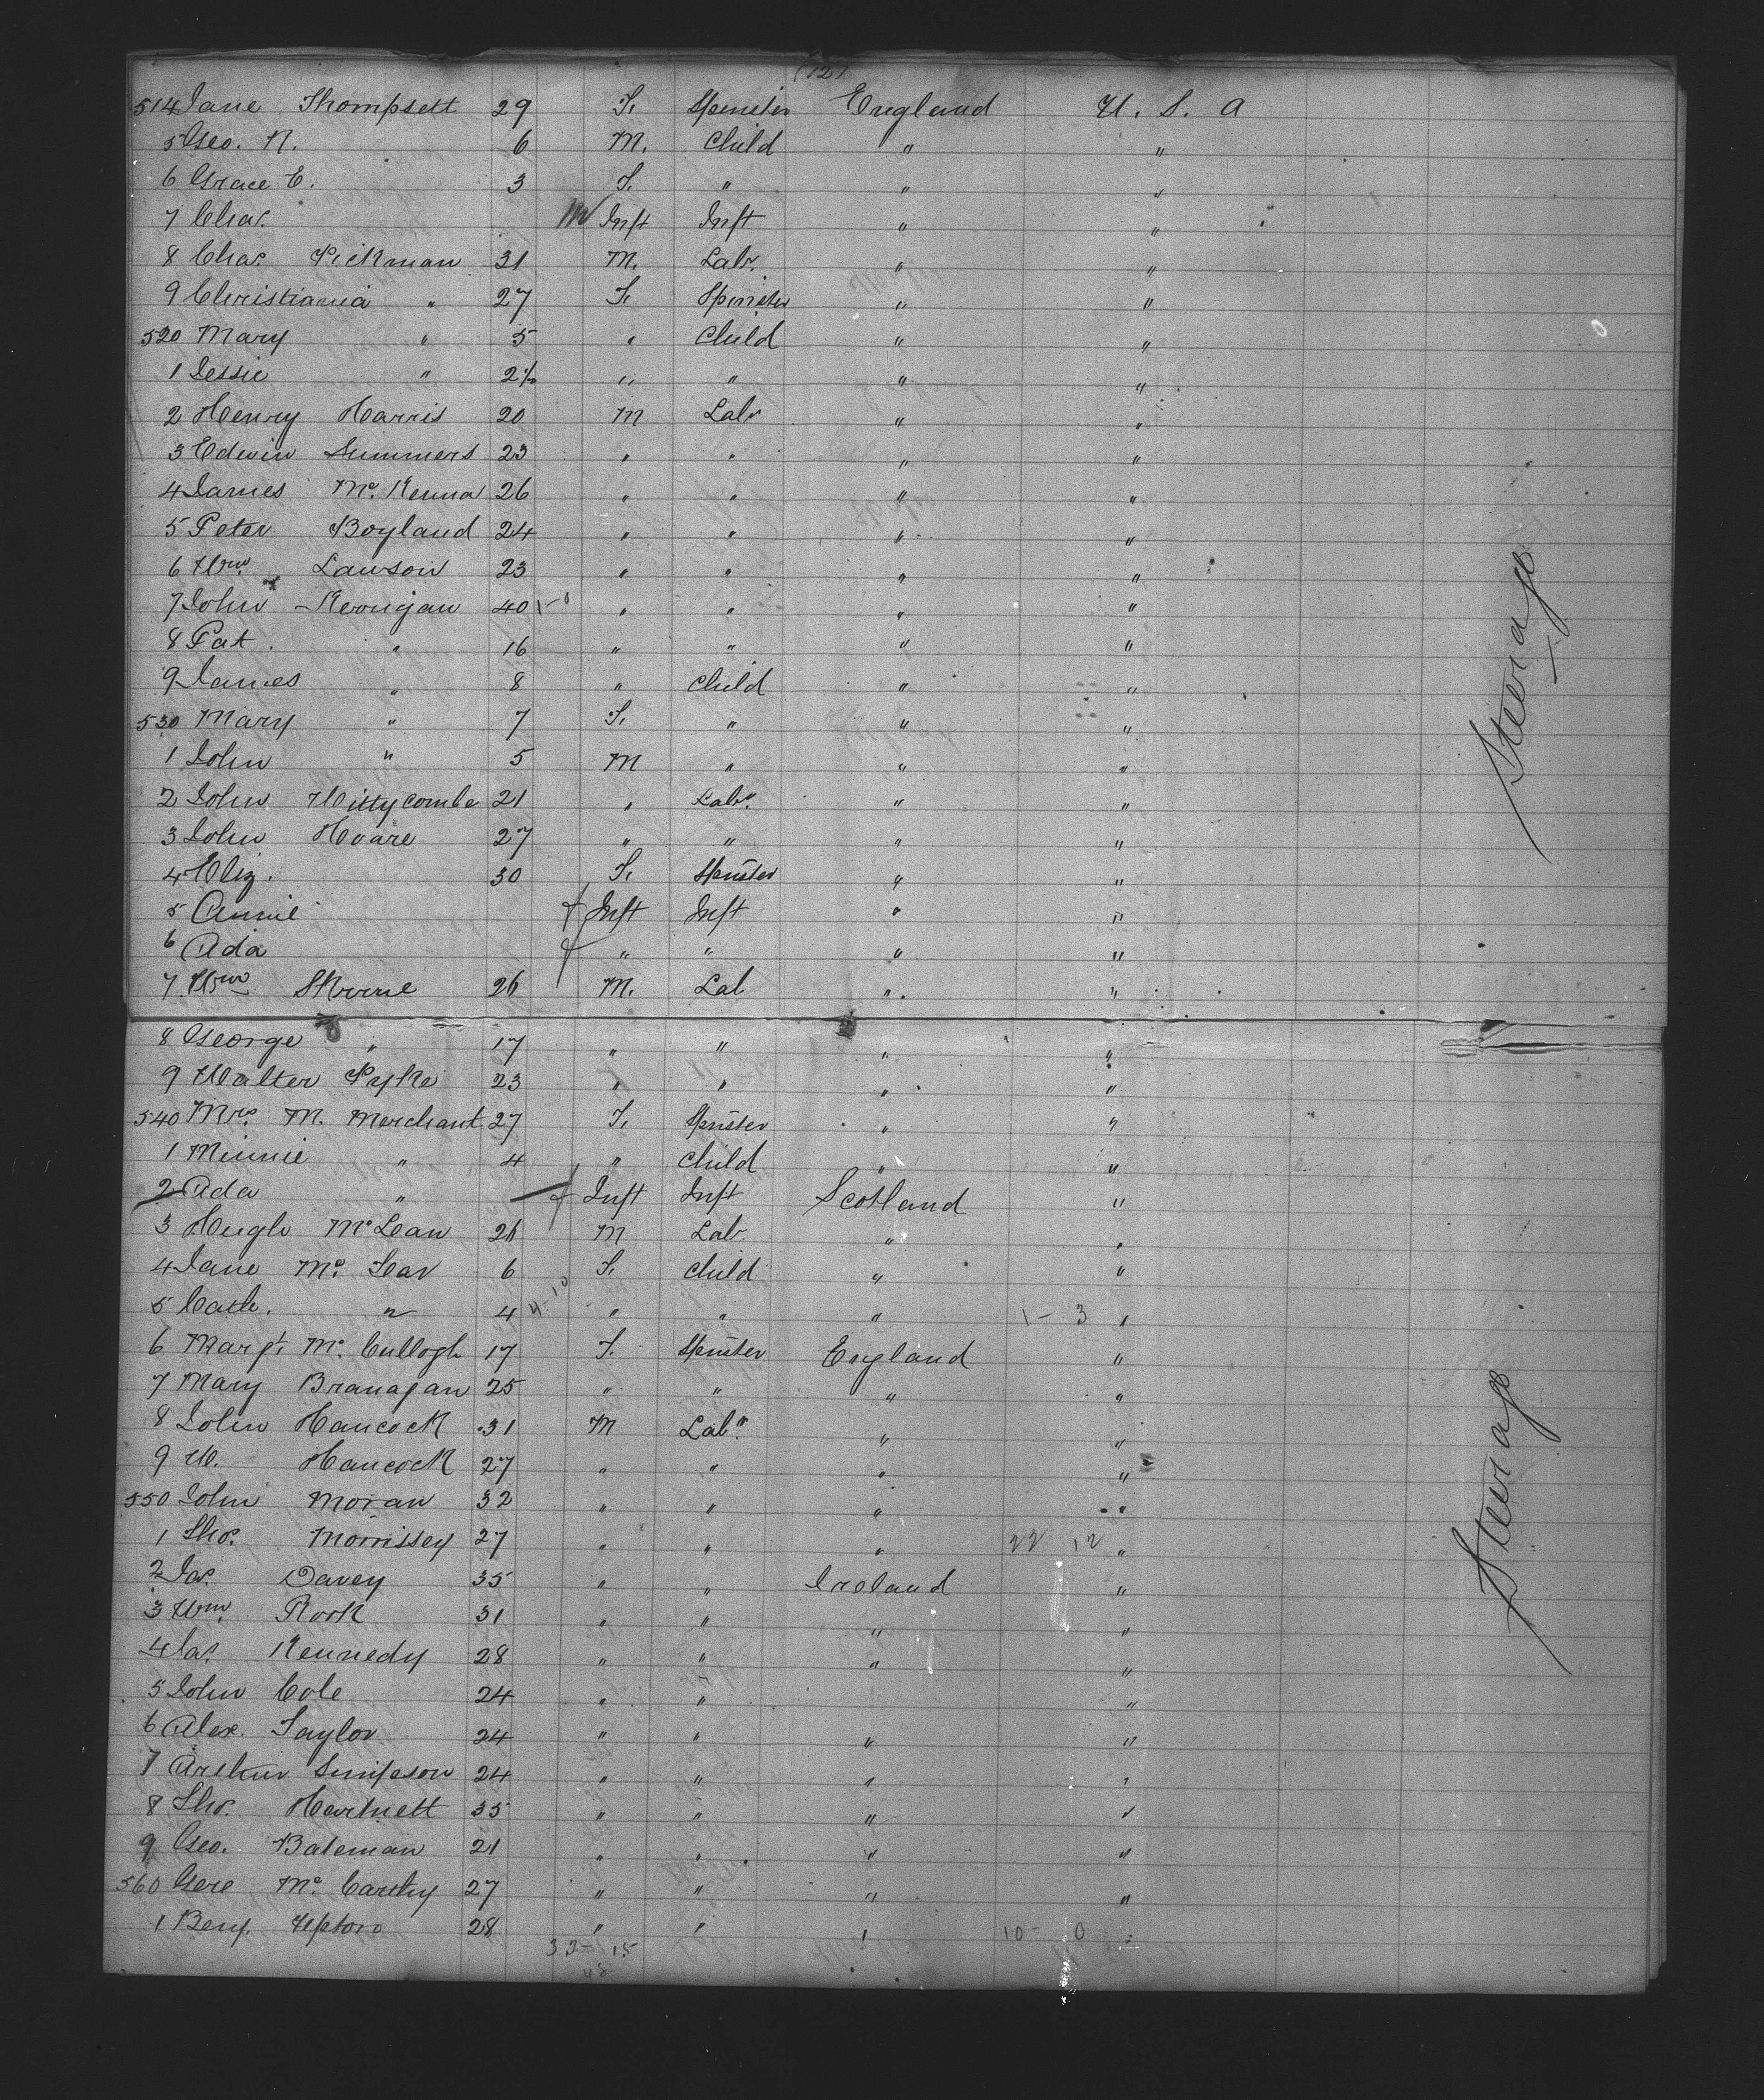 (12)
514 Jane Thompsett 29 F. Spinster England U. S. A
5 Geo. N. 6 M. Child " "
6 Grace E. 3 F. " " "
7 Chas. M Inft Inft " "
8 Chas. Pickman 31 M. Labr. " "
9 Christiania " 27 F. Spinster " "
520 Mary " 5 " Child " "
1 Jessie " 2½ " " " "
2 Henry Harris 20 M Labr " "
3 Edwin Summers 23 " " " "
4 James Mc. Kenna 26 " " " "
5 Peter Boyland 24 " " " "
6 Wm. Lawson 23 " " " "
7 John Kerrigan 40 " " " "
8 Pat. " 16 " " " "
9 James " 8 " Child " "
530 Mary " 7 F. " " "
1 John " 5 M " " "
2 John Wittycombe 21 " Labr. " "
3 John Hoare 27 " " " "
4 Eliz. 30 F. Spinster " "
5 Annie f Inft Inft " "
6 Ada f " " " "
7 Wm 26 M. Lab " "
8 George " 17 " " " "
9 Walter Pyke 23 " " " "
540 Mrs. M. Merchant 27 F. Spinster " "
1 Minnie " 4 " Child " "
2 Ada " f Inft Inft Scotland "
3 Hugh McLean 21 M Labr. " "
4 Jane Mc. 6 F. Child " "
5 Cath. " 4 4-10 " " " 1-3 "
6 Margt. Mc. Cullogh 17 F. Spinster England "
7 Mary Branagan 25 " " " "
8 John Hancock 31 M Labr. " "
9 W. Hancock 27 " " " "
550 John Moran 32 " " " "
1 Thos. Morrissey 27 " " " 22 12 "
2 Jas. Davey 35 " " Ireland "
3 Wm. Rook 31 " " " "
4 Jas. Kennedy 28 " " " "
5 John Cole 24 " " "
6 Alex. Taylor 24 " " " "
7 Arthur Simpson 24 " " " "
8 Thos. Hartnett 35 " " " "
9 Geo. Bateman 21 " " " "
560 Mc. Carthy 27 " " " "
1 Benj. Upton 28 " " " 10-0 "
33-15
48
Steerage
Steerage